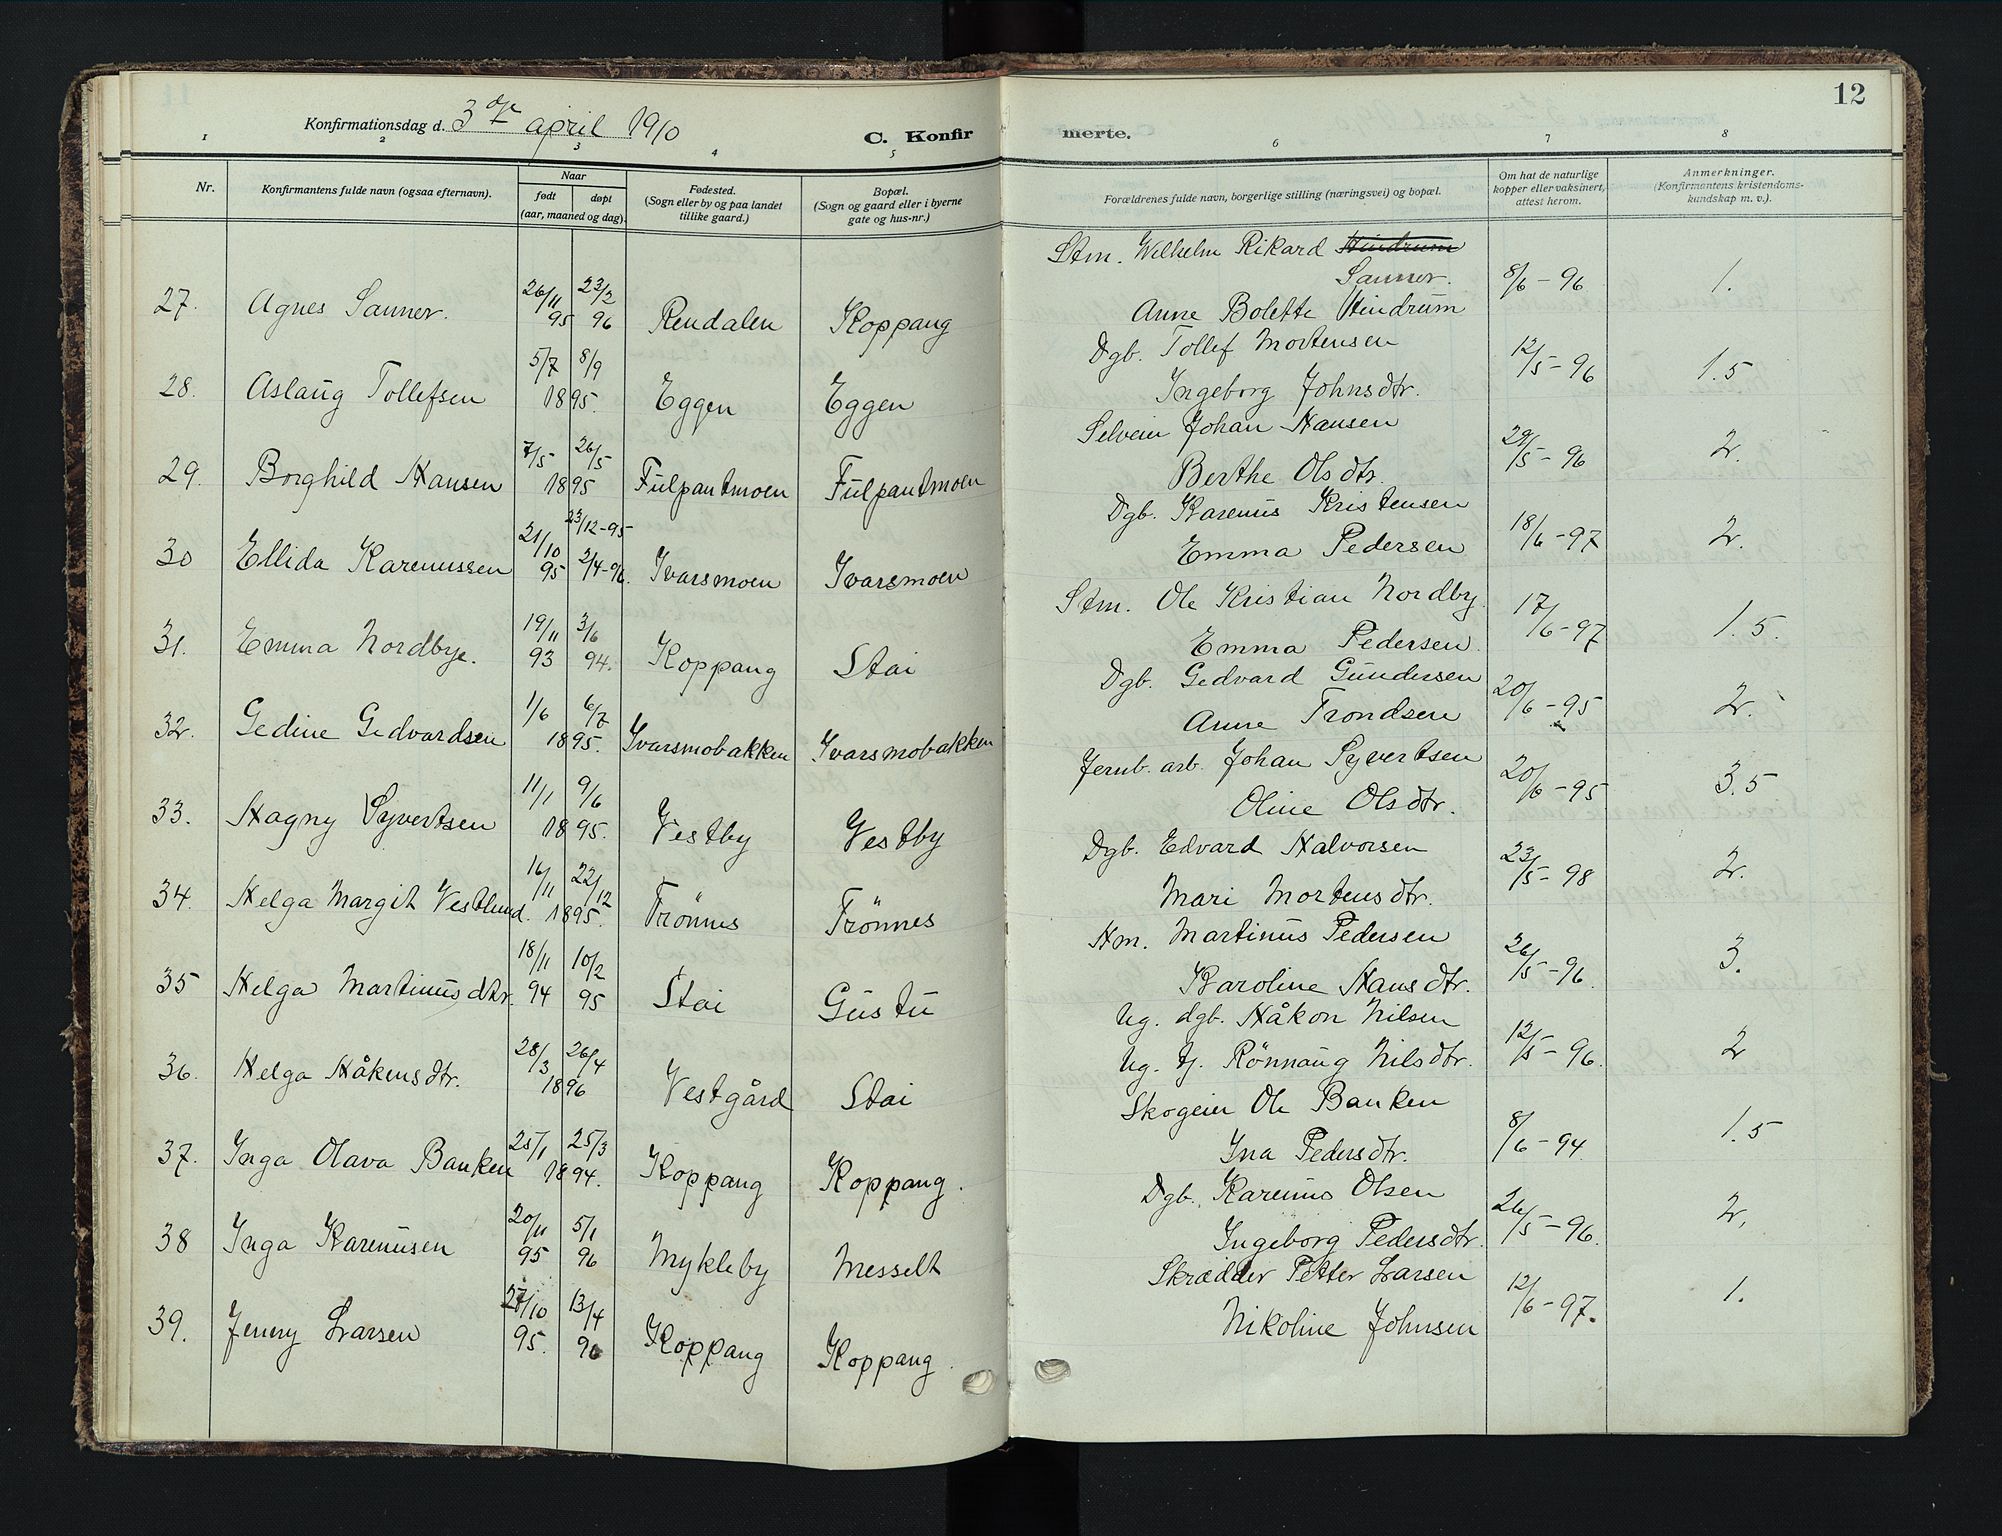 12
Konfirmationsdag d. 3de april 1910
C. Konfirmerte.
1 2 3 4 5 6 7 8
Nr.
Konfirmantens fulde navn (ogsaa efternavn).
Naar
født
døpt
(aar, maaned og dag).
Fødested.
(Sogn eller by og paa landet
tillike gaard.)
Bopæl.
(Sogn og gaard eller i byerne
gate og hus-nr.)
Forældrenes fulde navn, borgerlige stilling (næringsvei) og bopæl.
Om hat de naturlige
kopper eller vaksinert,
attest herom.
Anmerkninger.
(Konfirmantens kristendoms-
kundskap m. v.).
27. Agnes Sanner. 26/11 95 23/2 96 Rendalen Koppang
Stm. Wilhelm Rikard Hindrum
Sanner.
Anne Bolette Hindrum
8/6 - 96 1.
28. Aslaug Tollefsen 5/7 8/9 1895. Eggen Eggen
Dgb. Tollef Mortensen
Ingeborg Johnsdtr.
12/5 - 96 1.5
29. Borghild Hansen 7/5 26/5 1895 Fulpantmoen Fulpantmoen
Selveier Johan Hansen
Berthe Olsdtr.
29/5 - 96 2.
30 Ellida Karenussen 21/10 95 23/12-95 2/4-96. Ivarsmoen Ivarsmoen
Dgb. Karenus Kristensen
Emma Pedersen
18/6 - 97 2.
31. Emma Nordbye. 19/11 93 3/6 94. Koppang Stai
Stm. Ole Kristian Nordby
Emma Pedersen
17/6 - 97 1.5.
32. Gedine Gedvardsen 1/6 6/7 1895. Ivarsmobakken Ivarsmobakken
Dgb. Gedvard Gundersen
Anne Trondsen
20/6 - 95 2.
33. Hagny Syvertsen 11/1 9/6 1895. Vestby Vestby
Jernb. arb. Johan Syvertsen
Oline Olsdtr.
20/6 - 95 3.5
34. Helga Margit Vestlund. 16/11 22/12 1895. Trönnes Trönnes
Dgb. Edvard Halvorsen
Mari Mortensdtr.
23/5 - 98 2.
35 Helga Martinusdtr. 18/11 94 10/2 95 Stai Gustu
Hm. Martinus Pedersen
Karoline Hansdtr.
26/5 - 96. 3.
36. Helga Håkensdtr. 28/3 26/4 1896 Vestgård Stai
Ug. dgb. Håkon Nilsen
Ug. tj. Rönnaug Nilsdtr.
12/5 - 96. 2
37. Inga Olava Banken 25/1 25/3 1894. Koppang Koppang.
Skogeier Ole Banken
Ina Pedersdtr.
8/6 - 94 1.5
38 Inga Karenusen 20/11 95 5/1 96 Mykleby Messelt
Dgb. Karenus Olsen
Ingeborg Pedersdtr.
26/5 - 96. 2.
39. Jenny Larsen 27/10 95. 13/4 96 Koppang Koppang.
Skrædder Petter Larsen
Nikoline Johnsen
12/6 - 97. 1.